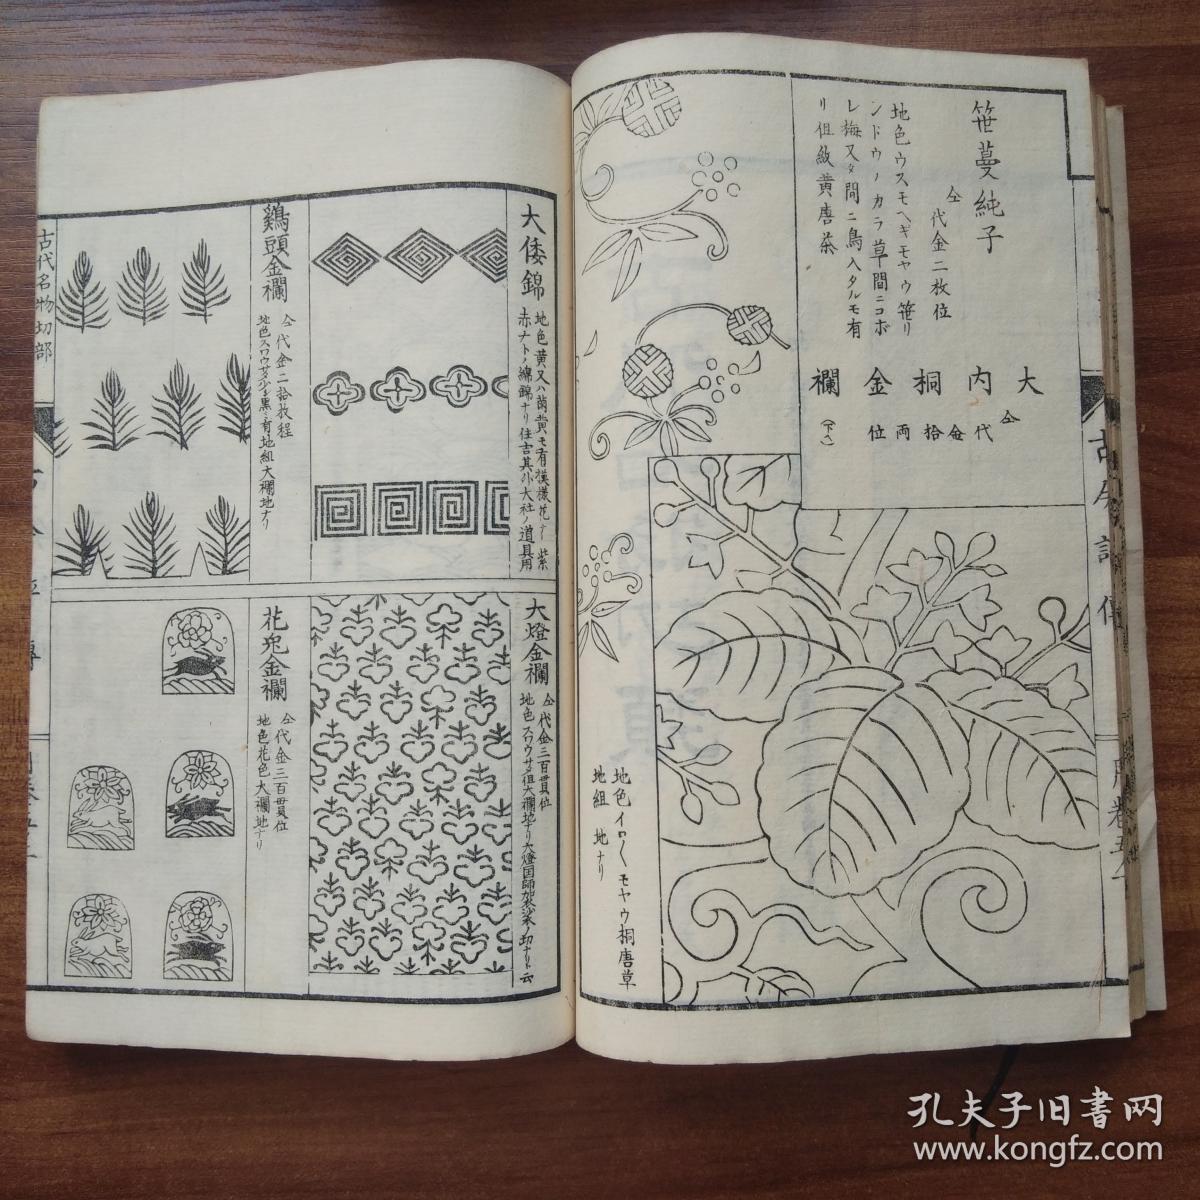 笹蔓純子
仝 代金二枚位
地色ウスモヘギモヤウ笹リ
ンドウノカラ草間ニコボ
レ梅又タ間ニ鳥入タルモ有
リ但紋黄唐茶
大内桐金欄
仝代金拾両位
地色イロ〱モヤウ桐唐草
地組 地ナリ
大倭錦
地色黄又ハ茵黄モ有模様花ナト紫
赤ナトノ綿錦ナリ住吉其外大社ノ道具用
鷄頭金欄
仝代金二拾枚程
地色スワウサメ少シ黒ミ有地組大欄地ナリ
古代名物切部
大燈金欄
仝代金三百貫位
地色スワウサメ但大欄地ナリ大燈国師袈裟ノ切ナリト云
花兎金襴
仝代金三百毌貫位
地色花色大欄地ナリ
孔夫子旧书网
www.kongfz.com